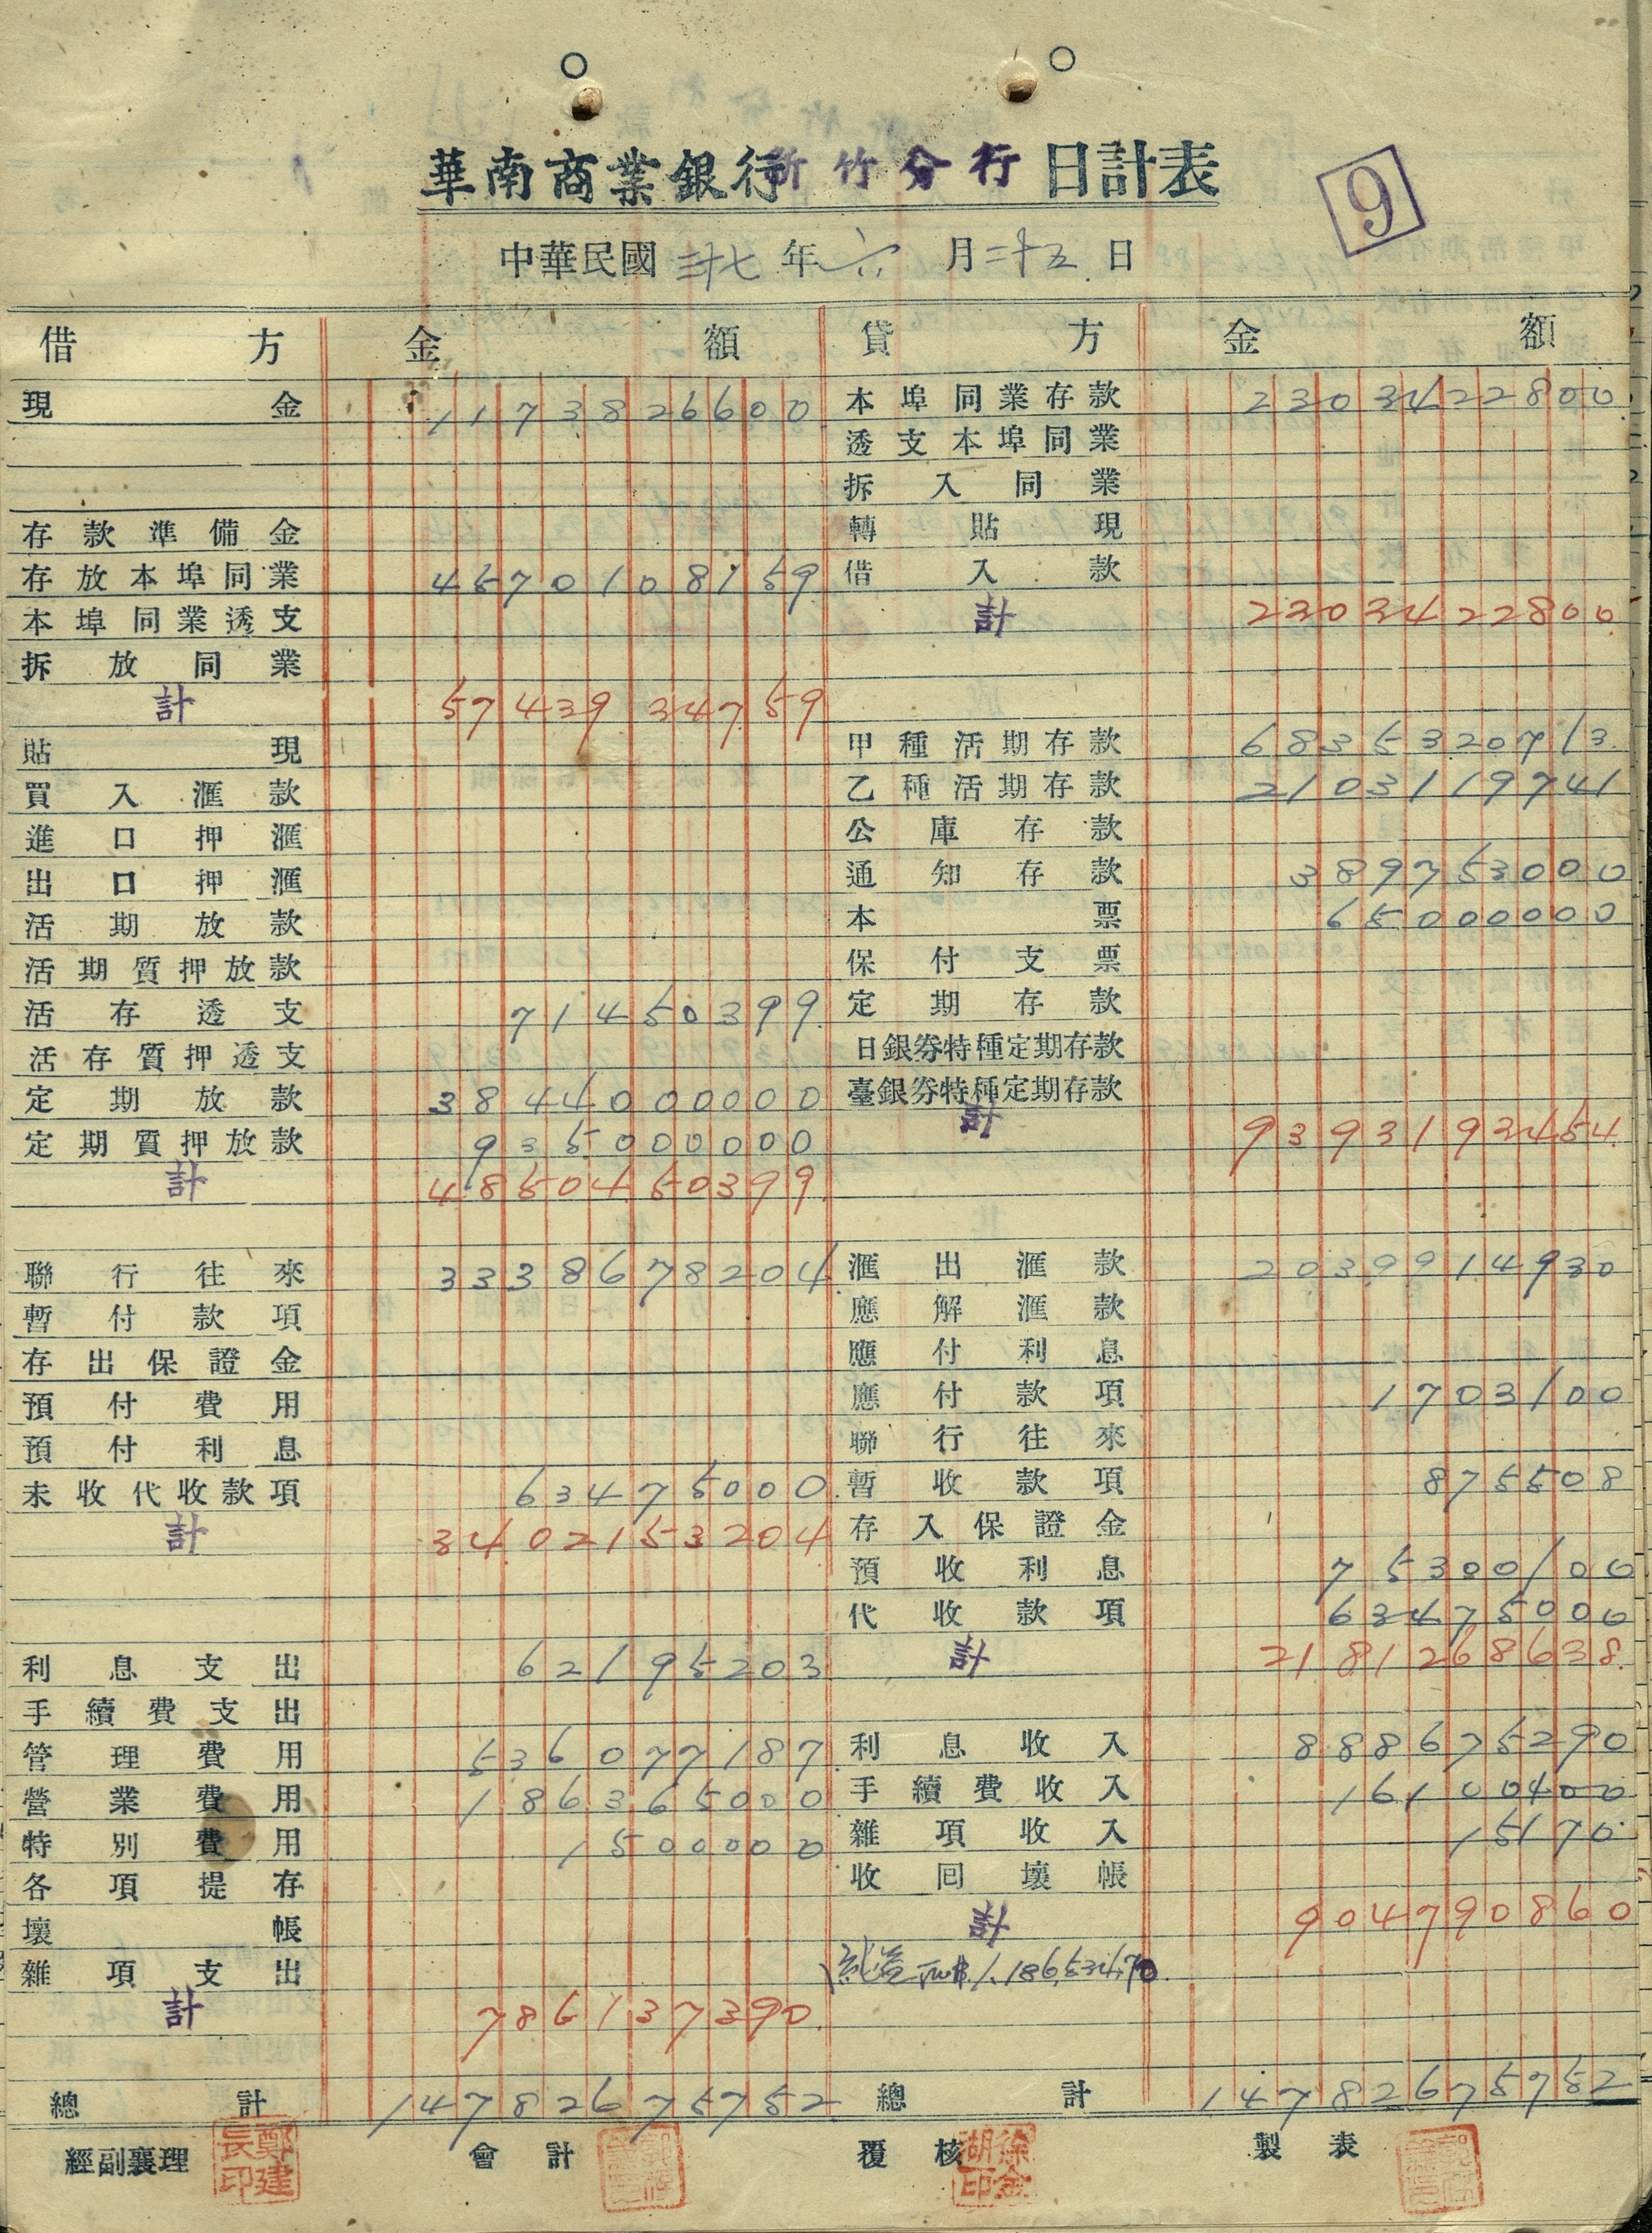 華南商業銀行新竹分行日計表
9
中華民國 三十七 年 六 月 二十五 日
借方 金額 貸方 金額
現金 1173826600 本埠同業存款 2303422800
透支本埠同業
拆入同業
存款準備金 轉貼現
存放本埠同業 4570108159 借入款
本埠同業透支 計 2303422800
拆放同業
計 5743934759
貼現 甲種活期存款 6835320713
買入滙款 乙種活期存款 2103119741
進口押滙 公庫存款
出口押滙 通知存款 389753000
活期放款 本票 65000000
活期質押放款 保付支票
活存透支 71450399 定期存款
活存質押透支 日銀券特種定期存款
定期放款 3844000000 臺銀券特種定期存款
定期質押放款 935000000 計 9393193454
計 4850450399
聯行往來 3338678204 滙出滙款 2039914930
暫付款項 應解滙款
存出保證金 應付利息
預付費用 應付款項 1703100
預付利息 聯行往來
未收代收款項 63475000 暫收款項 875508
計 3402153204 存入保證金
預收利息 75300100
代收款項 63475000
利息支出 62195203 計 2181268638
手續費支出
管理費用 536077187 利息收入 888675290
營業費用 186365000 手續費收入 16100400
特別費用 1500000 雜項收入 15170
各項提存 收回壞帳
壞帳 計 904790860
雜項支出 純益 TW$ 1,186,534.70
計 786137390
總計 14782675752 總計 14782675752
經副襄理 鄭建長印 會計 覆核 徐金湖印 製表